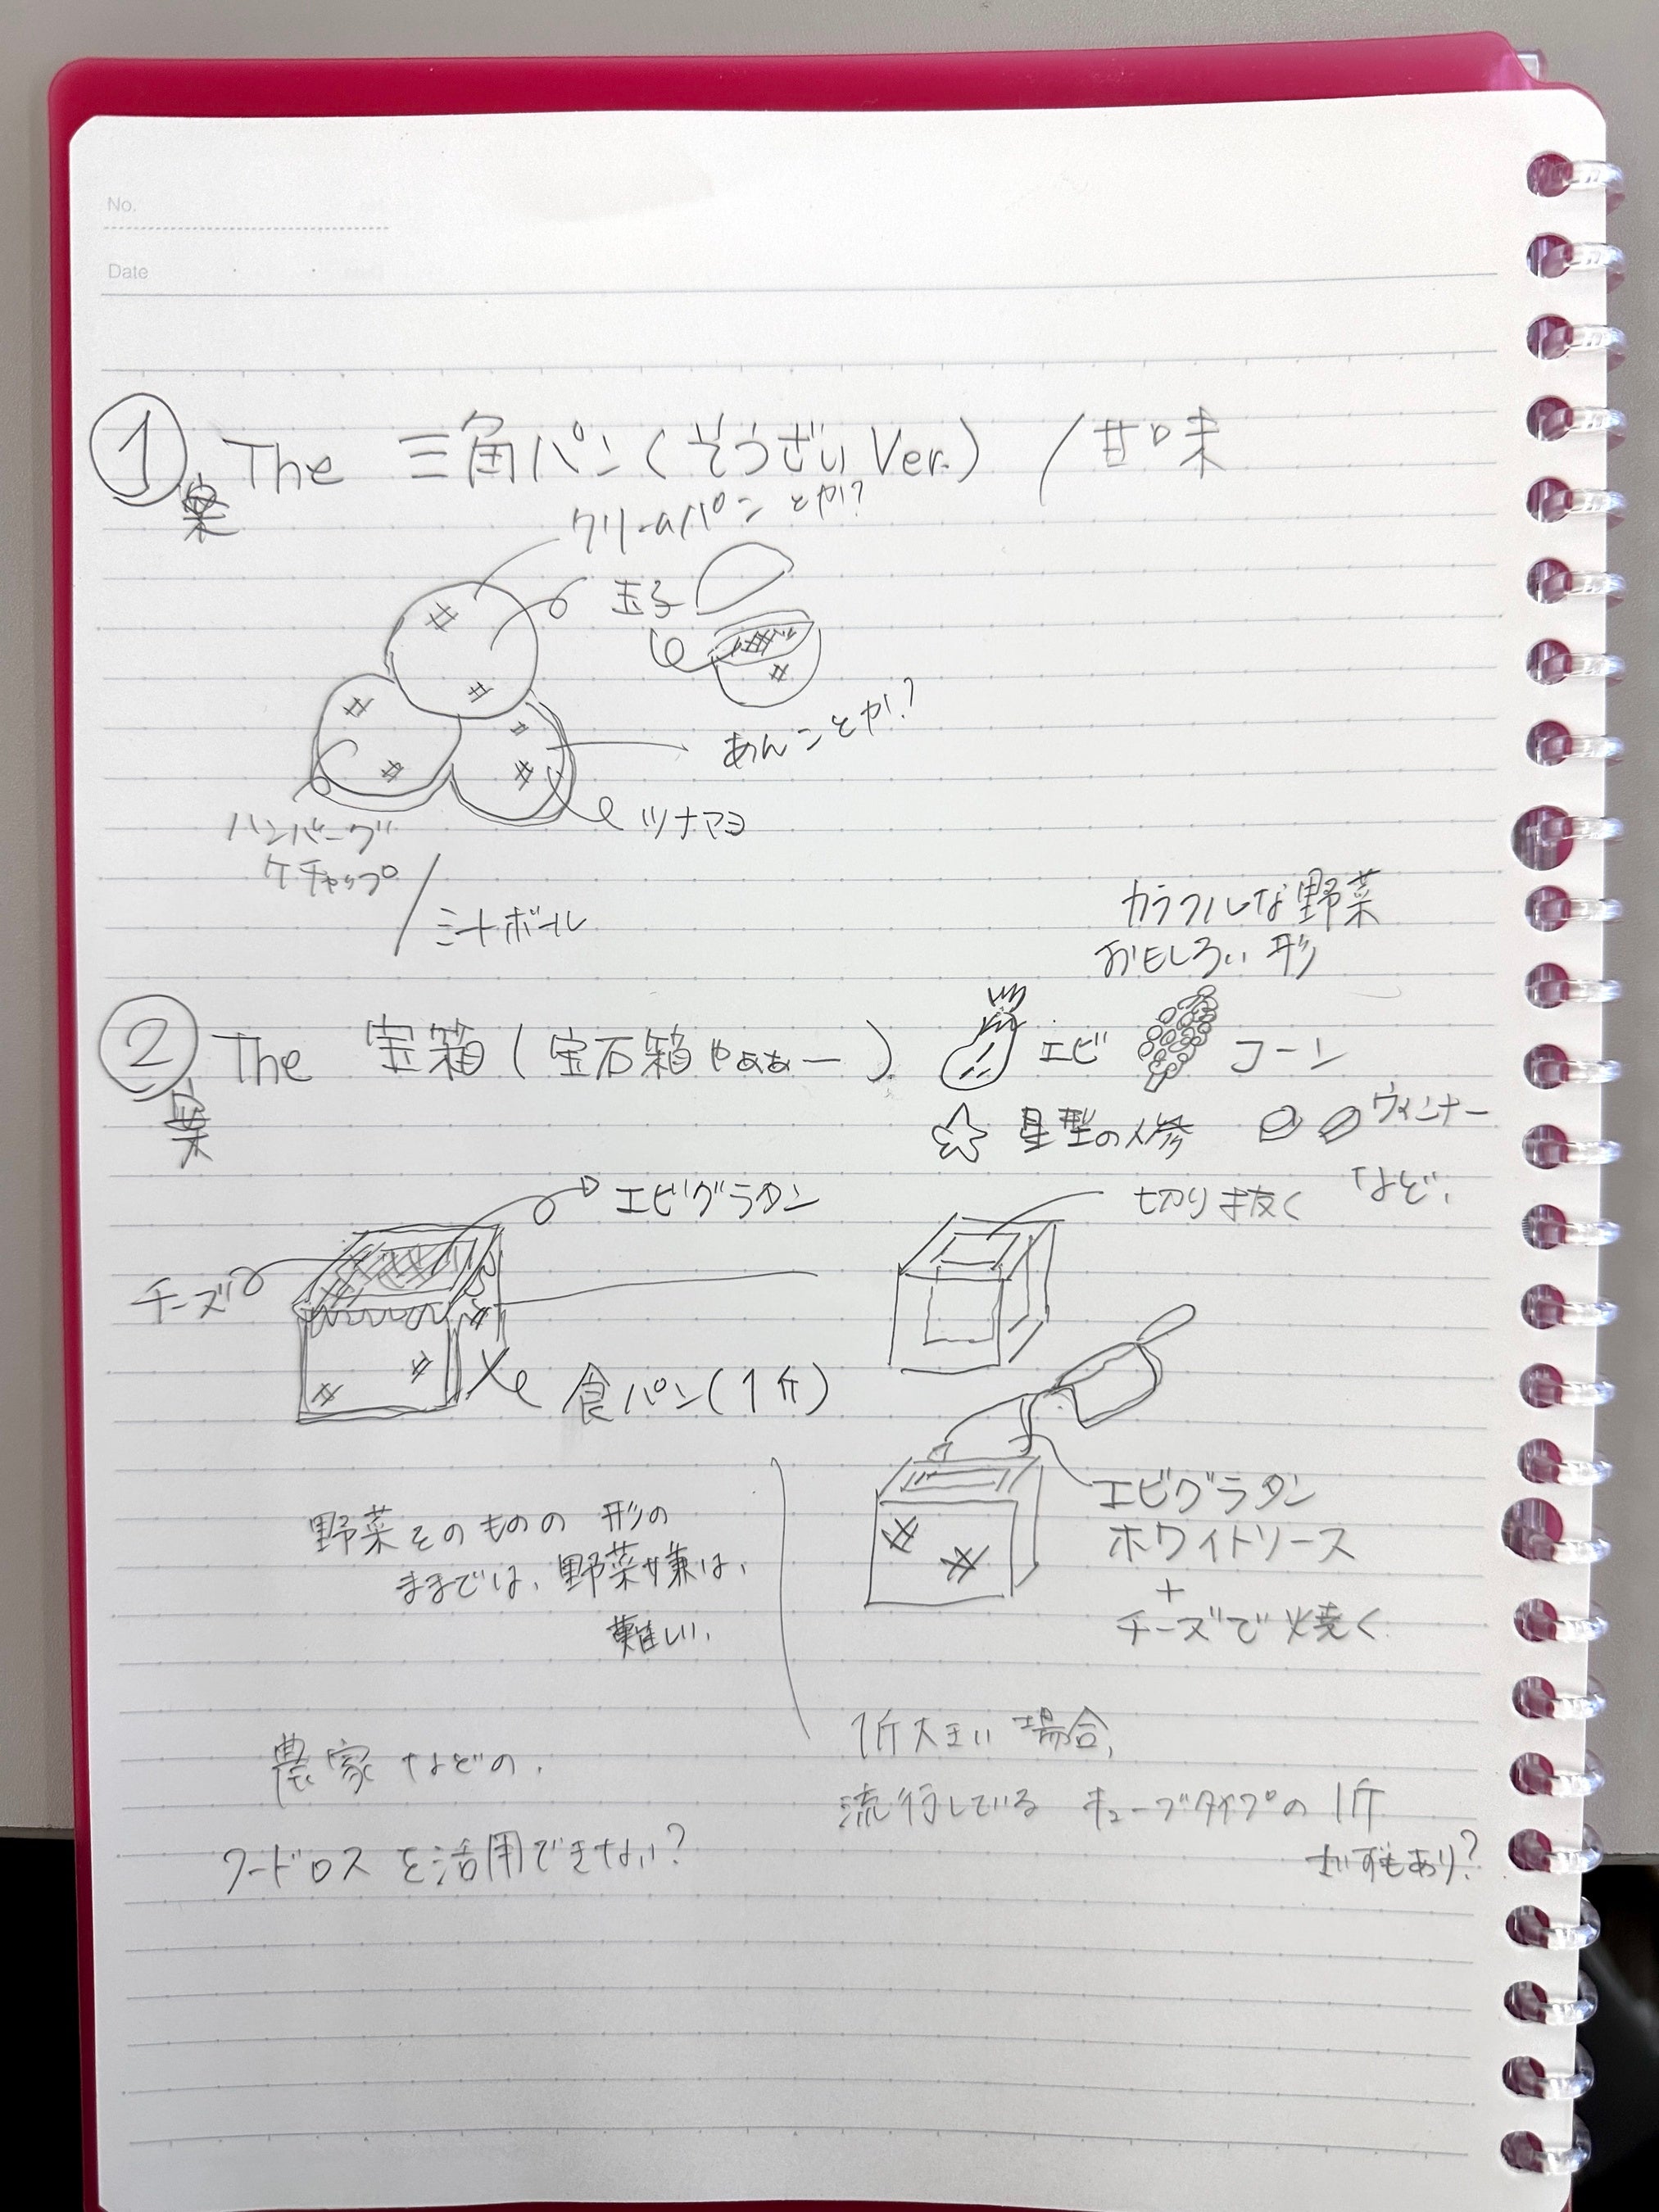 No.
Date
① 案 The 三角パン(そうざいVer.) /甘味
クリームパンとか?
玉子
あんことか?
ツナマヨ
ハンバーグ
ケチャップ
/ミートボール
カラフルな野菜
おもしろい形
② 案 The 宝箱(宝石箱やぁぁー)
エビ
コーン
星型の人参
ウィンナー
など、
エビグラタン
チーズ
食パン(1斤)
切り抜く
エビグラタン
ホワイトソース
+
チーズで焼く
野菜そのものの形の
ままでは、野菜嫌は、
難しい、
農家などの、
フードロスを活用できない?
1斤大きい場合、
流行しているキューブタイプの1斤
さいずもあり?